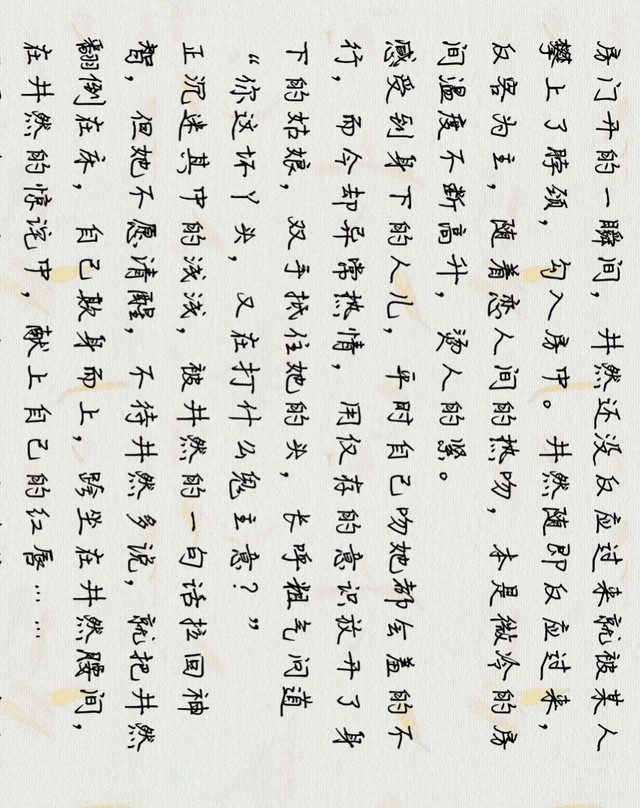 房门开的一瞬间，井然还没反应过来就被某人
攀上了脖颈，勾入房中。井然随即反应过来，
反客为主，随着恋人间的热吻，本是微冷的房
间温度不断高升，烫人的紧。
感受到身下的人儿，平时自己吻她都会羞的不
行，而今却异常热情，用仅存的意识放开了身
下的姑娘，双手抵住她的头，长呼粗气问道
“你这坏丫头，又在打什么鬼主意？”
正沉迷其中的浅浅，被井然的一句话拉回神
智，但她不愿清醒，不待井然多说，就把井然
翻倒在床，自己欺身而上，跨坐在井然腰间，
在井然的惊诧中，献上自己的红唇……